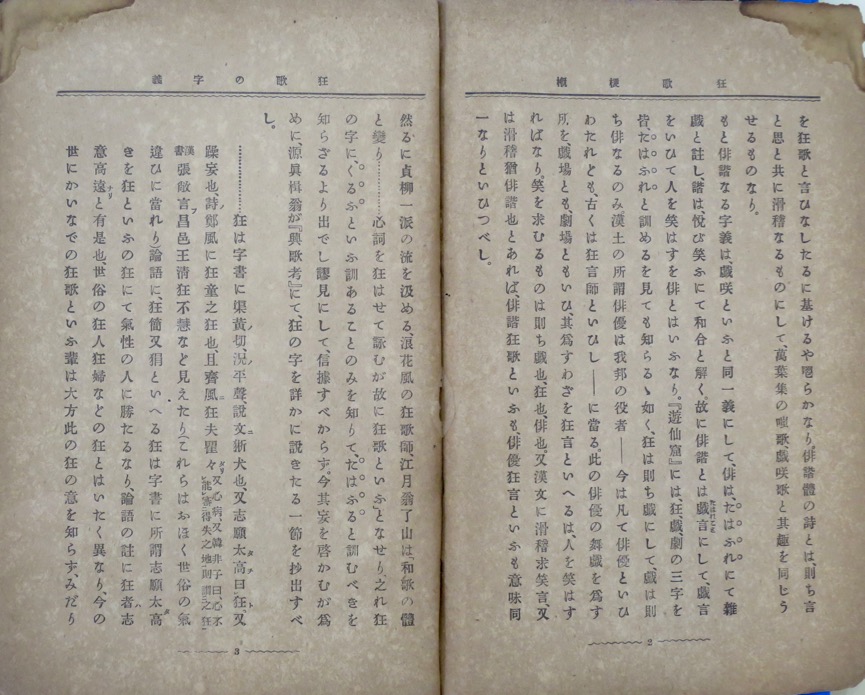 狂歌梗概
を狂歌と言ひなしたるに基けるや明らかなり。俳諧體の詩とは、則ち言
と思と共に滑稽なるものにして、萬葉集の嗤歌戯咲歌と其趣を同じう
せるものなり。
もと俳諧なる字義は、戯咲といふと同一義にして、俳は、たはふれにて雜
戯と註し、諧は、悅び笑ふにて和合と解く。故に俳諧とは戯言にして、戯言
をいひて人を笑はすを俳とはいふなり。『遊仙窟』には、狂戯劇の三字を
皆、たはふれと訓めるを見ても知らるゝ如く、狂は則ち戯にして、戯は則
ち俳なるのみ漢土の所謂俳優は我邦の役者――今は凡て俳優といひ
わたれども、古くは狂言師といひし――に當る。此の俳優の舞戯を爲す
所を、戯場とも、劇場ともいひ、其爲すわざを狂言といへるは、人を笑はす
ればなり。笑を求むるものは則ち戯也、狂也、俳也。又漢文に滑稽求笑言、又
は滑稽猶俳諧也とあれば、俳諧狂歌といふも、俳優狂言といふも意味同
一なりといひつべし。
2
狂歌の字義
然るに貞柳一派の流を汲める、浪花風の狂歌師、江月翁了山は、和歌の體
と變り…………心詞を狂はせて詠むが故に狂歌といふ』となせり。之れ狂
の字に、くるふといふ訓あることのみを知りて、たはふると訓むべきを
知らざるより出でし謬見にして、信據すべからず。今其妄を啓かむが爲
めに、源眞楫翁が『興歌考』にて、狂の字を詳かに說きたる一節を抄出すべ
し。
…………狂は字書に渠黃切、況平聲、說文狾犬也、又志願太高曰狂、又
躁妄也、詩鄭風に狂童之狂也、且齊風狂夫瞿々又心病、又韓非子曰、心不能審得失之地則謂之狂
漢書張敞言、昌邑王淸狂不慧など見えたり(これらはおほく世俗の氣
違ひに當れり)論語に、狂簡又狷といへる狂は字書に所謂志願太高
きを狂といふの狂にて氣性の人に勝たるなり、論語の註に狂者志
意高遠と有是也、世俗の狂人狂婦などの狂とはいたく異なり、今の
世にかいなでの狂歌といふ輩は大方此の狂の意を知らず、みだり
3